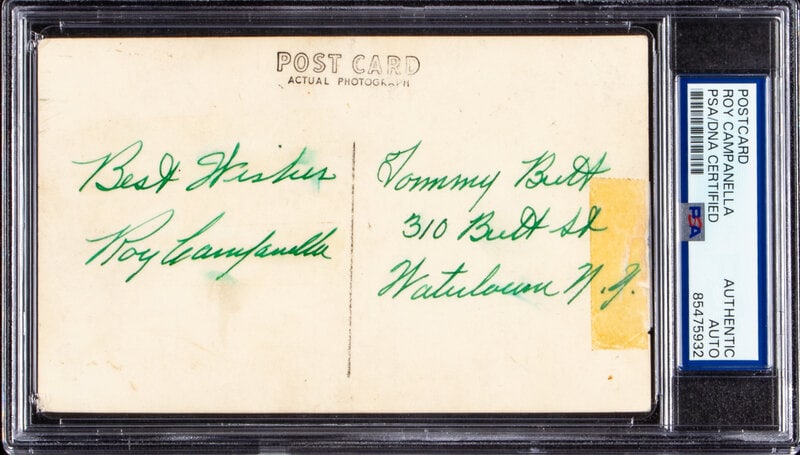 POST CARD
ACTUAL PHOTOGRAPH
Best Wishes
Roy Campanella
Tommy Butt
310 Butt St
Watertown N.Y.
POSTCARD
ROY CAMPANELLA
PSA/DNA CERTIFIED
PSA
AUTHENTIC
AUTO
85475932